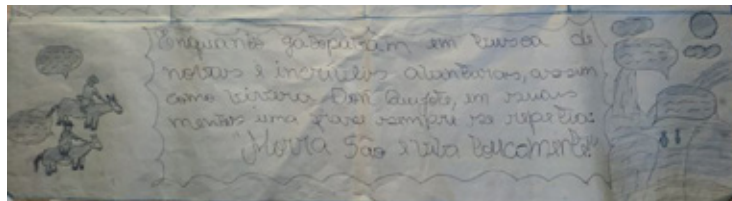 Enquanto galopavam em busca de
novas e incríveis aventuras, assim
como vivera Dom Quixote, em suas
mentes uma frase sempre se repetia:
"Morra São e viva Loucamente"